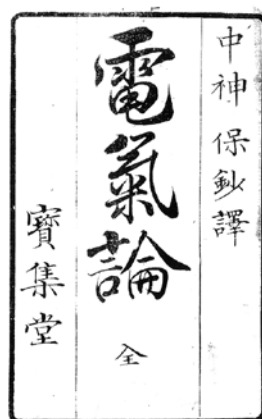 中神保鈔譯
電氣論
全
寳集堂